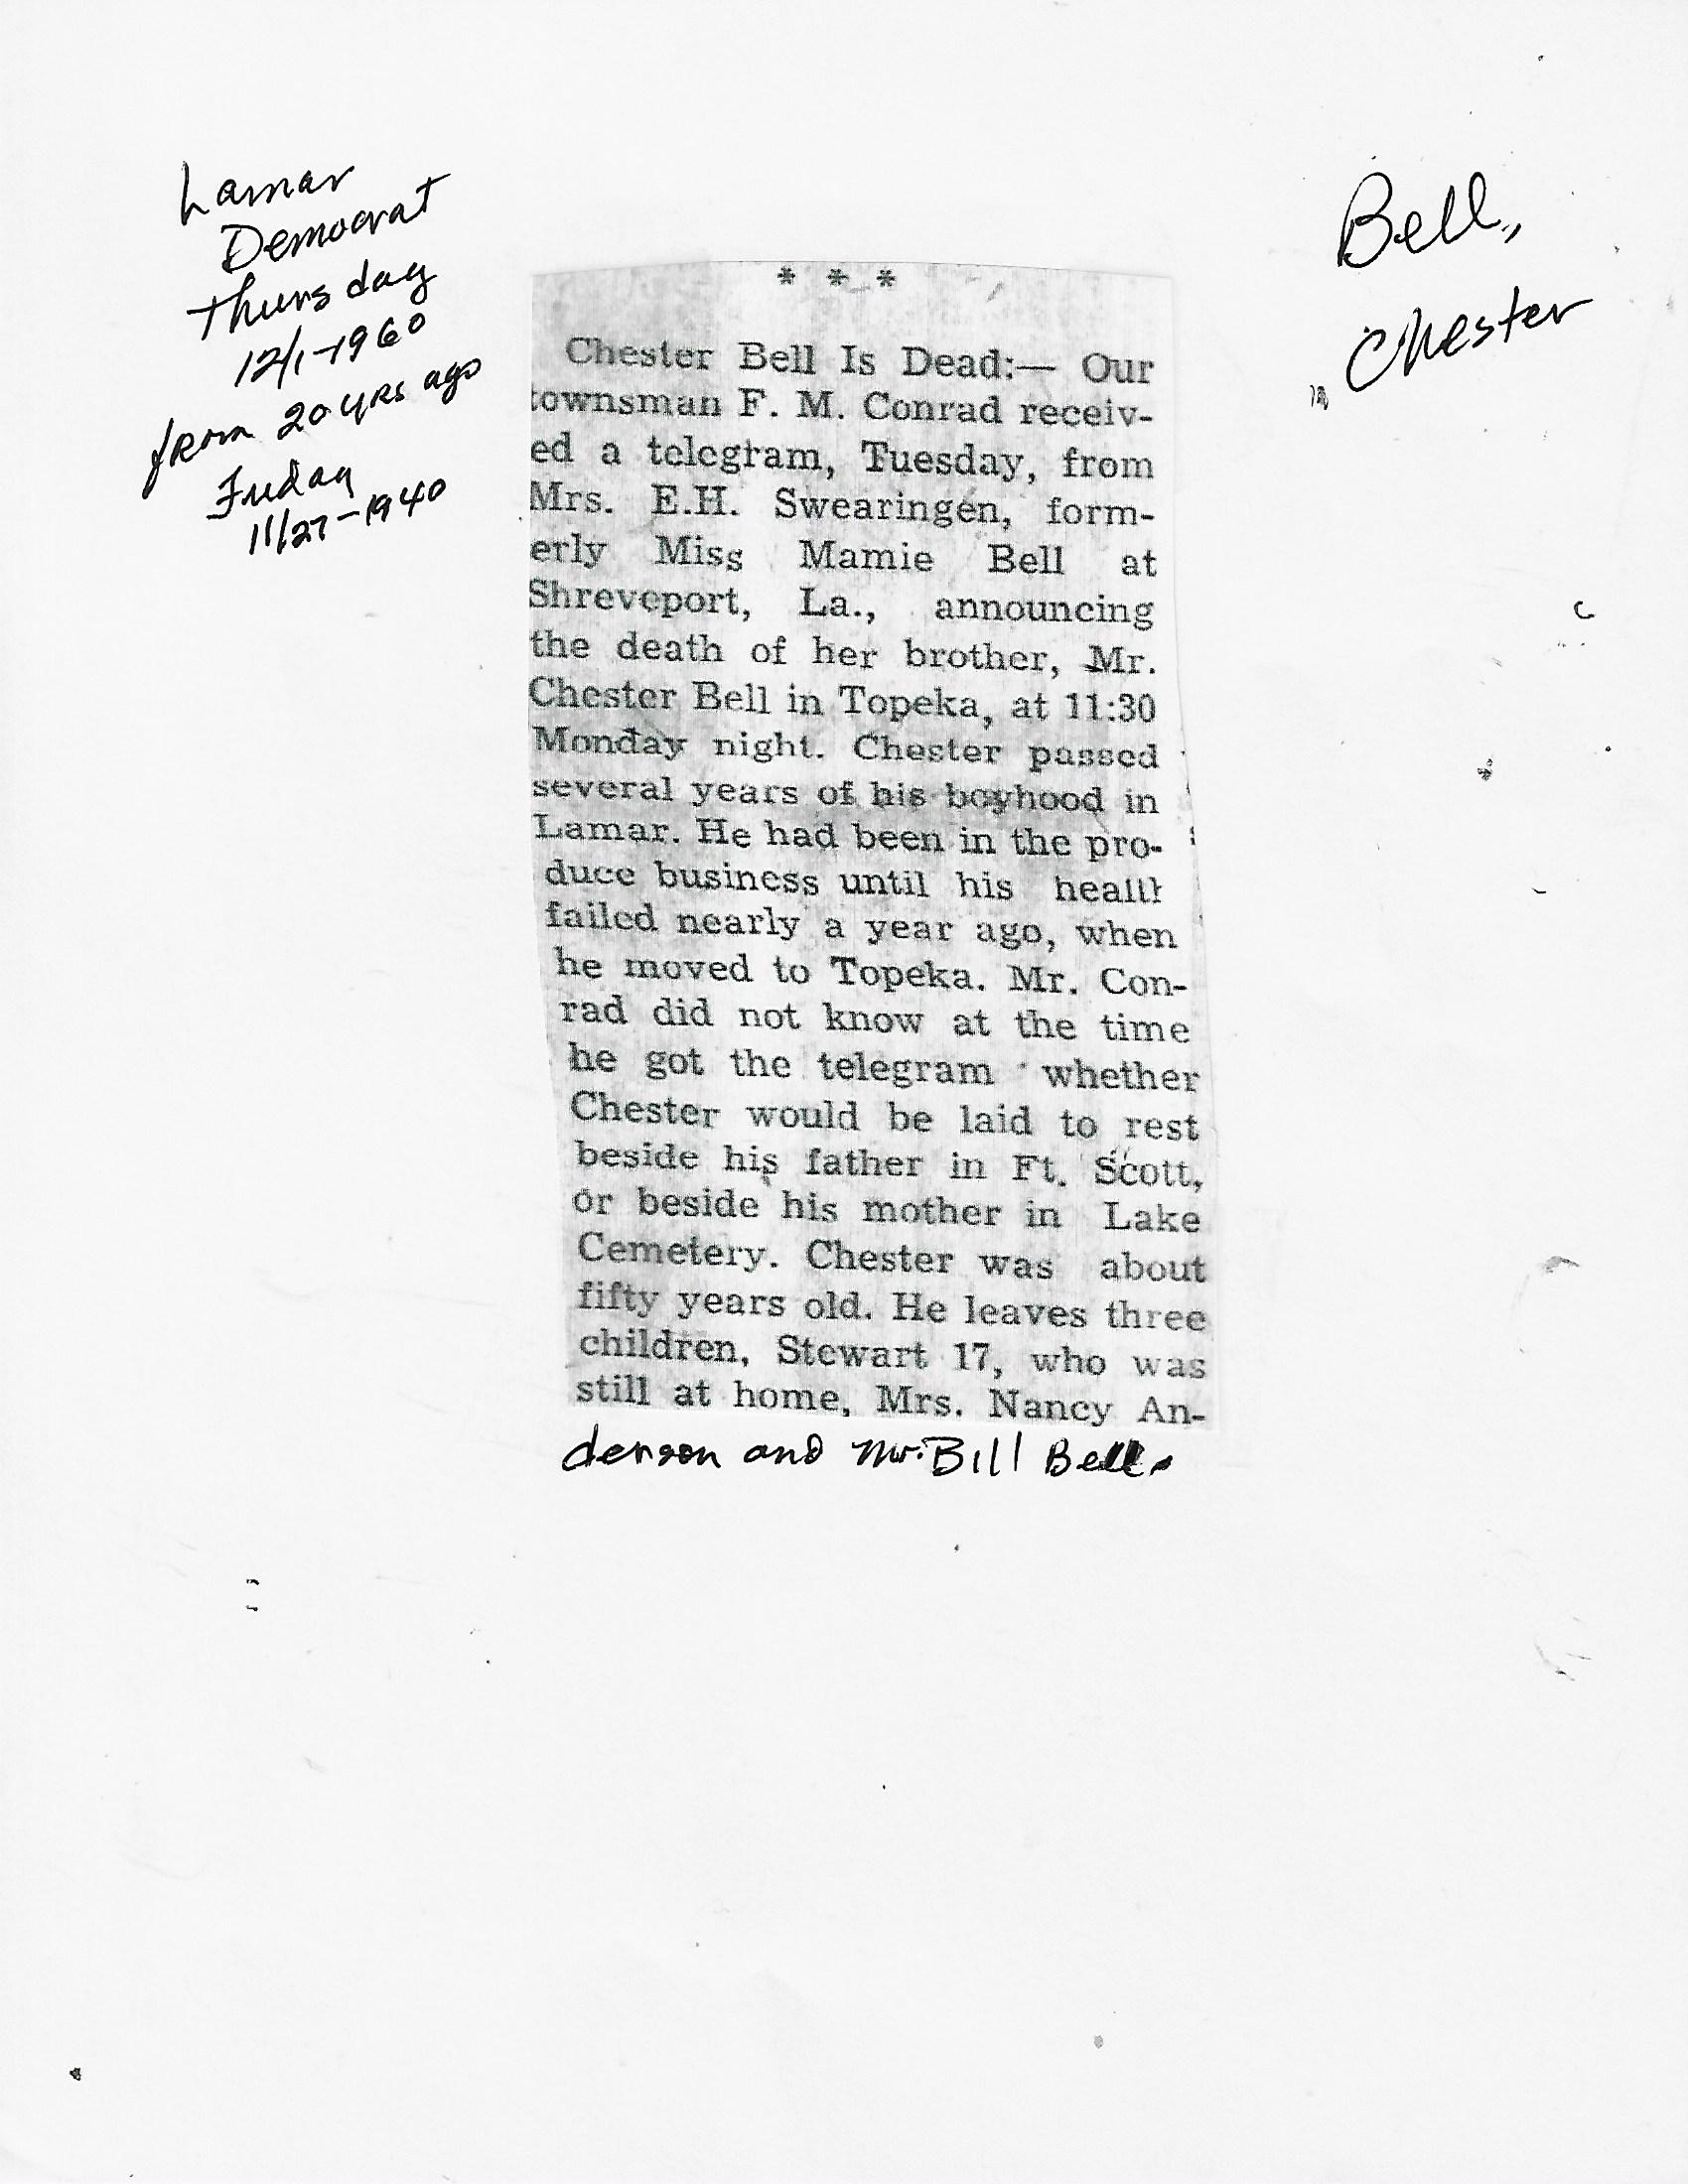 Lamar
Democrat
Thursday
12/1-1960
from 20 yrs ago
Friday
11/27-1940
Bell,,
Chester
* * *
Chester Bell Is Dead:— Our
townsman F. M. Conrad receiv-
ed a telegram, Tuesday, from
Mrs. E.H. Swearingen, form-
erly Miss Mamie Bell at
Shreveport, La., announcing
the death of her brother, Mr.
Chester Bell in Topeka, at 11:30
Monday night. Chester passed
several years of his boyhood in
Lamar. He had been in the pro-
duce business until his health
failed nearly a year ago, when
he moved to Topeka. Mr. Con-
rad did not know at the time
he got the telegram whether
Chester would be laid to rest
beside his father in Ft. Scott,
or beside his mother in Lake
Cemetery. Chester was about
fifty years old. He leaves three
children, Stewart 17, who was
still at home, Mrs. Nancy An-
derson and Mr. Bill Bell.